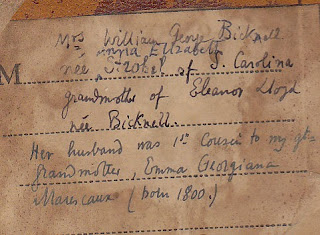 Mrs William George Bicknell
Anna Elizabeth
M née Strobel of S. Carolina
grandmother of Eleanor Lloyd
née Bicknell.
Her husband was 1st Cousin to my gt-
grandmother, Emma Georgiana
Marescaux (born 1800.)